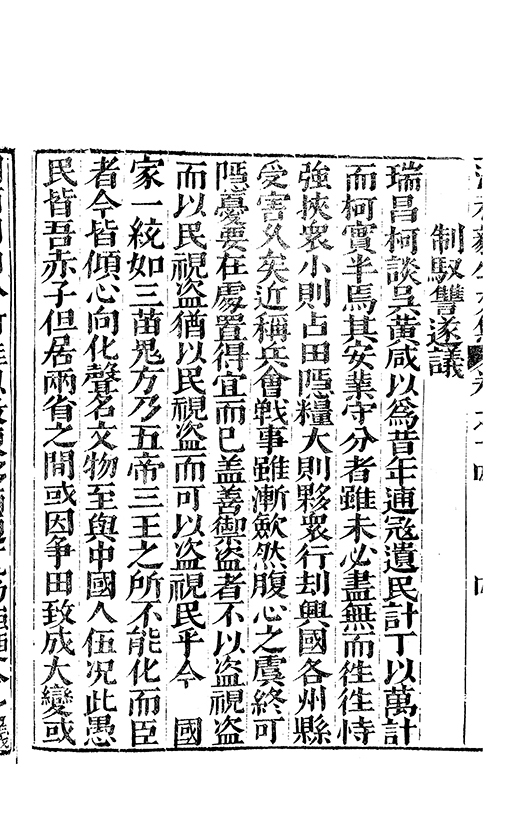 制馭讐遂議
瑞昌柯談吳黃咸以為昔年逋冦遺民計丁以萬計
而柯實半焉其安業守分者雖未必盡無而徃徃恃
強挾衆小則占田隱糧大則夥衆行刼興國各州縣
受害久矣近稱兵會戰事雖漸歛然腹心之虞終可
隱憂要在處置得宜而已盖善禦盜者不以盜視盜
而以民視盜猶以民視盜而可以盜視民乎今 國
家一統如三苗鬼方乃五帝三王之所不能化而臣
者今皆傾心向化聲名文物至與中國人伍况此愚
民皆吾赤子但居兩省之間或因爭田致成大變或